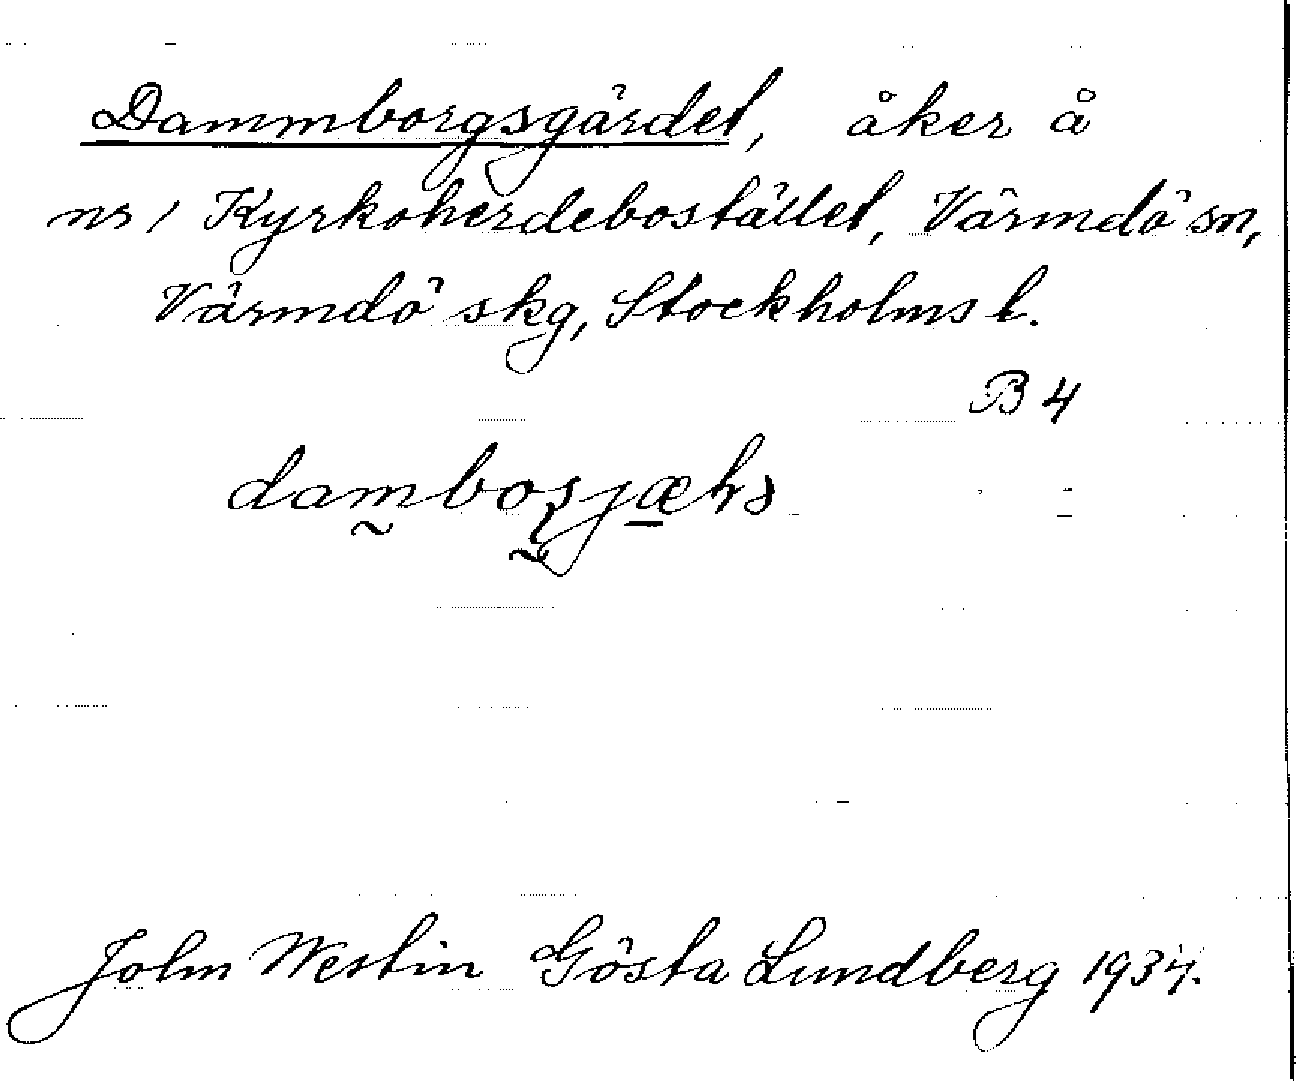 Dammborgsgärdet, åker å
nr 1 Kyrkoherdebostället, Värmdö sn,
Värmdö skg, Stockholms l.
B 4
John Westin Gösta Lundberg 1934.